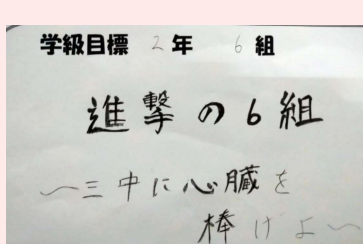 学級目標 2年 6組
進撃の6組
〜三中に心臓を
棒げよ〜